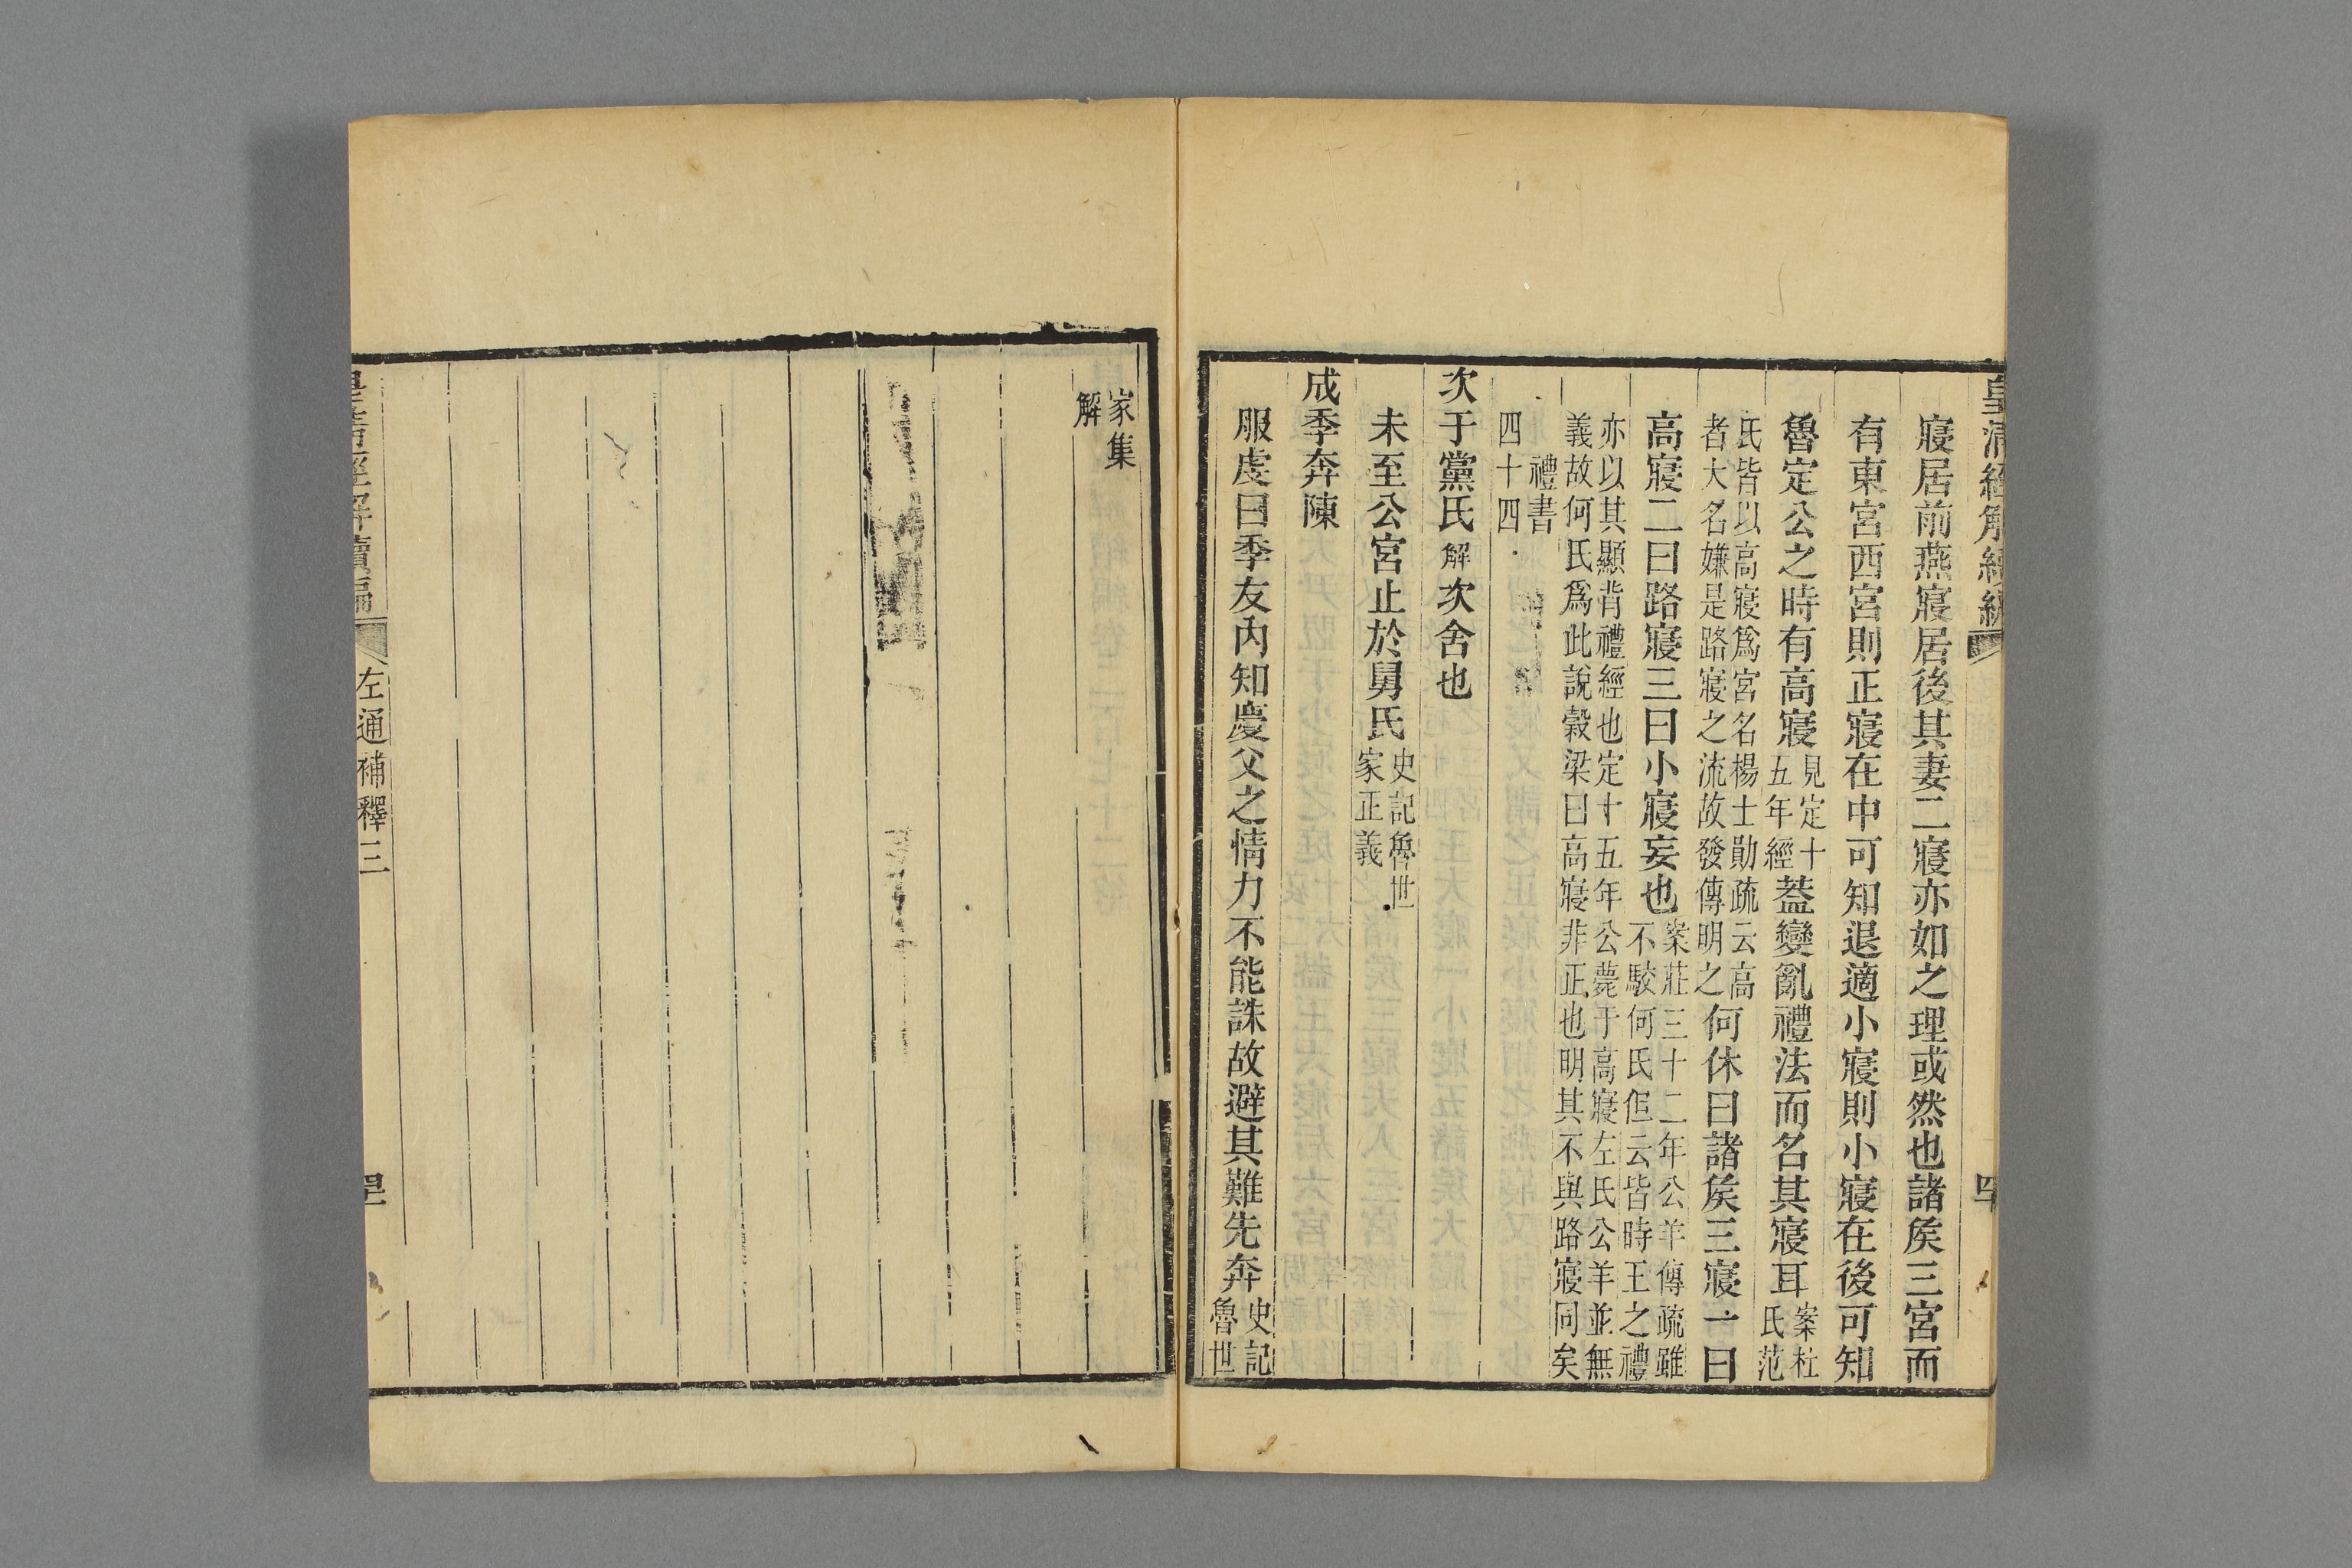 皇清經解續編
寢居前燕寢居後其妻二寢亦如之理或然也諸矦三宮而
有東宮西宮則正寢在中可知退適小寢則小寢在後可知
魯定公之時有高寢見定十五年經葢變亂禮法而名其寢耳案杜氏范
氏皆以高寢爲宮名楊士勛疏云高者大名嫌是路寢之流故發傳明之何休曰諸矦三寢一曰
高寢二曰路寢三曰小寢妄也案莊三十二年公羊傳疏雖不駮何氏但云皆時王之禮
亦以其顯背禮經也定十五年公薨于高寢左氏公羊並無義故何氏爲此說穀梁曰高寢非正也明其不與路寢同矣
禮書四十四
次于黨氏解次舍也
未至公宮止於舅氏史記魯世家正義
成季奔陳
服虔曰季友內知慶父之情力不能誅故避其難先奔史記魯世
家集解
皇清經解續編
左通補釋三